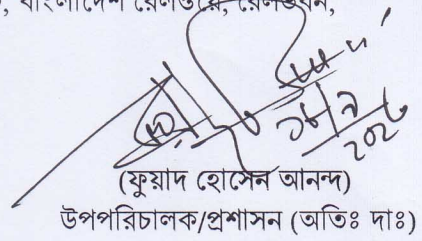 বাংলাদেশ রেলওয়ে, রেলভবন,
২০২৫
(ফুয়াদ হোসেন আনন্দ)
উপপরিচালক/প্রশাসন (অতিঃ দাঃ)